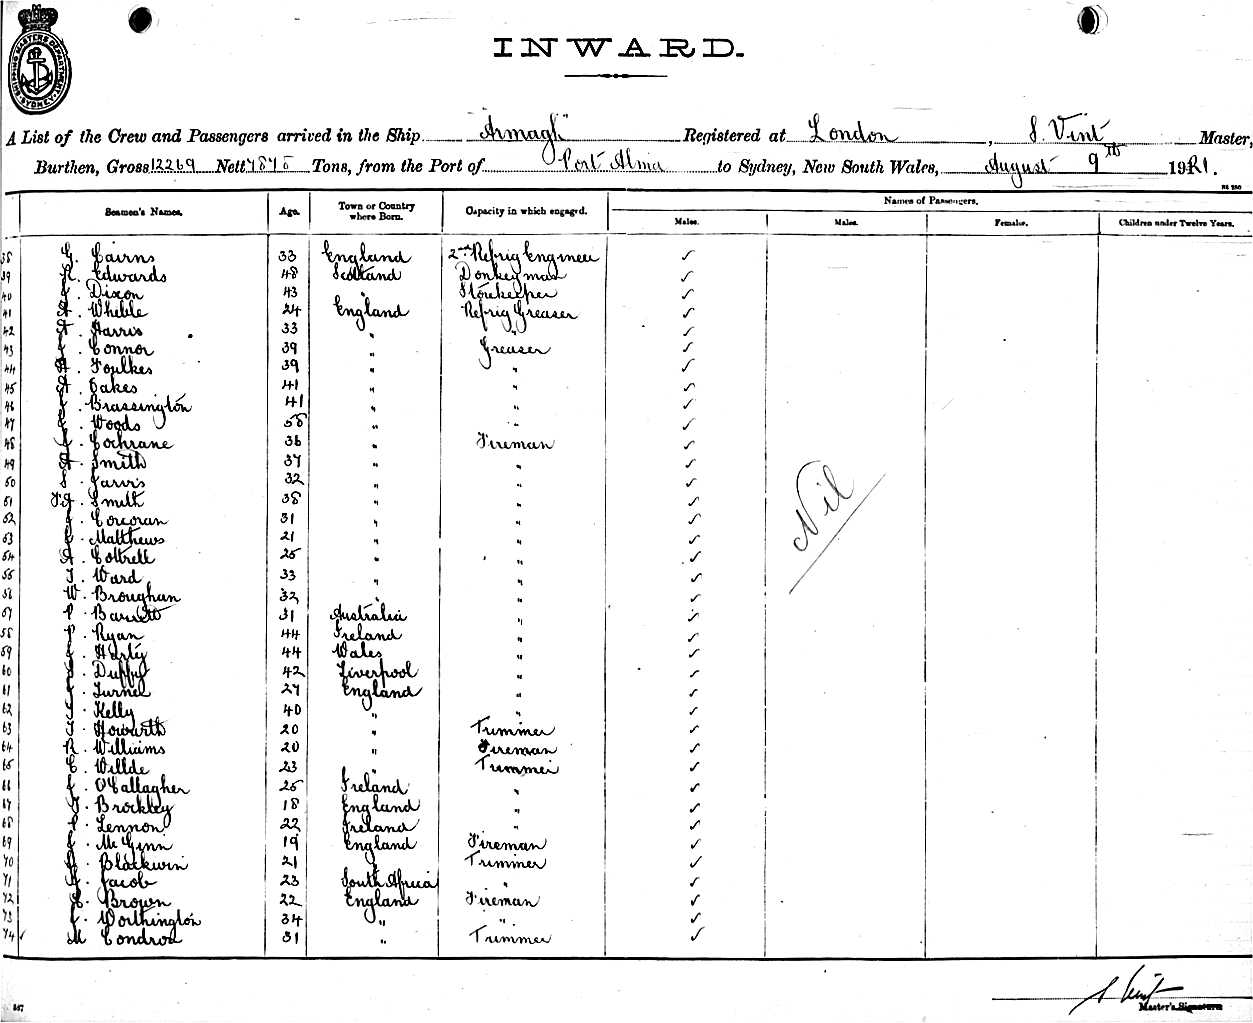 SHIPPING MASTERS DEPARTMENT SYDNEY
INWARD.
A List of the Crew and Passengers arrived in the Ship "Armagh" Registered at London, S. Vint Master,
Burthen, Gross 12269 Nett 7878 Tons, from the Port of Port Alma to Sydney, New South Wales, August 9th 1921.
Seamen's Names. Age. Town or Country where Born. Capacity in which engaged. Names of Passengers.
Males. Males. Females. Children under Twelve Years.
38 G. Cairns 33 England 2nd Refrig Engineer ✓
39 R. Edwards 48 Scotland Donkeyman ✓
40 J. Dixon 43 " Storekeeper ✓
41 A. Wheble 24 England Refrig Greaser ✓
42 A. Harris 33 " " ✓
43 J. Connor 39 " Greaser ✓
44 H. Foulkes 39 " " ✓
45 A. Oakes 41 " " ✓
46 J. Brassington 41 " " ✓
47 Woods 58 " " ✓
48 J. Cochrane 36 " Fireman ✓
49 A. Smith 37 " " ✓
50 S. Jarvis 32 " " ✓
51 Smith 38 " " ✓
52 J. Corcoran 31 " " ✓
53 Matthews 21 " " ✓
54 A. Cottrell 25 " " ✓
55 T. Ward 33 " " ✓
56 W. Broughan 32 " " ✓
57 P. Barrett 31 Australia " ✓
58 P. Ryan 44 Ireland " ✓
59 Harty 44 Wales " ✓
60 Duffy 42 Liverpool " ✓
61 J. Turnel 27 England " ✓
62 T. Kelly 40 " " ✓
63 T. Howarth 20 " Trimmer ✓
64 R. Williams 20 " Fireman ✓
65 C. Willde 23 " Trimmer ✓
66 J. O'Callagher 25 Ireland " ✓
67 Brockley 18 England " ✓
68 P. Lennon 22 Ireland " ✓
69 J. McGinn 19 England Fireman ✓
70 Blackwin 21 " Trimmer ✓
71 Jacob 23 South Africa " ✓
72 Brown 22 England Fireman ✓
73 J. Worthington 34 " " ✓
74 M Condron 31 " Trimmer ✓
Nil
S Vint
Master's Signature